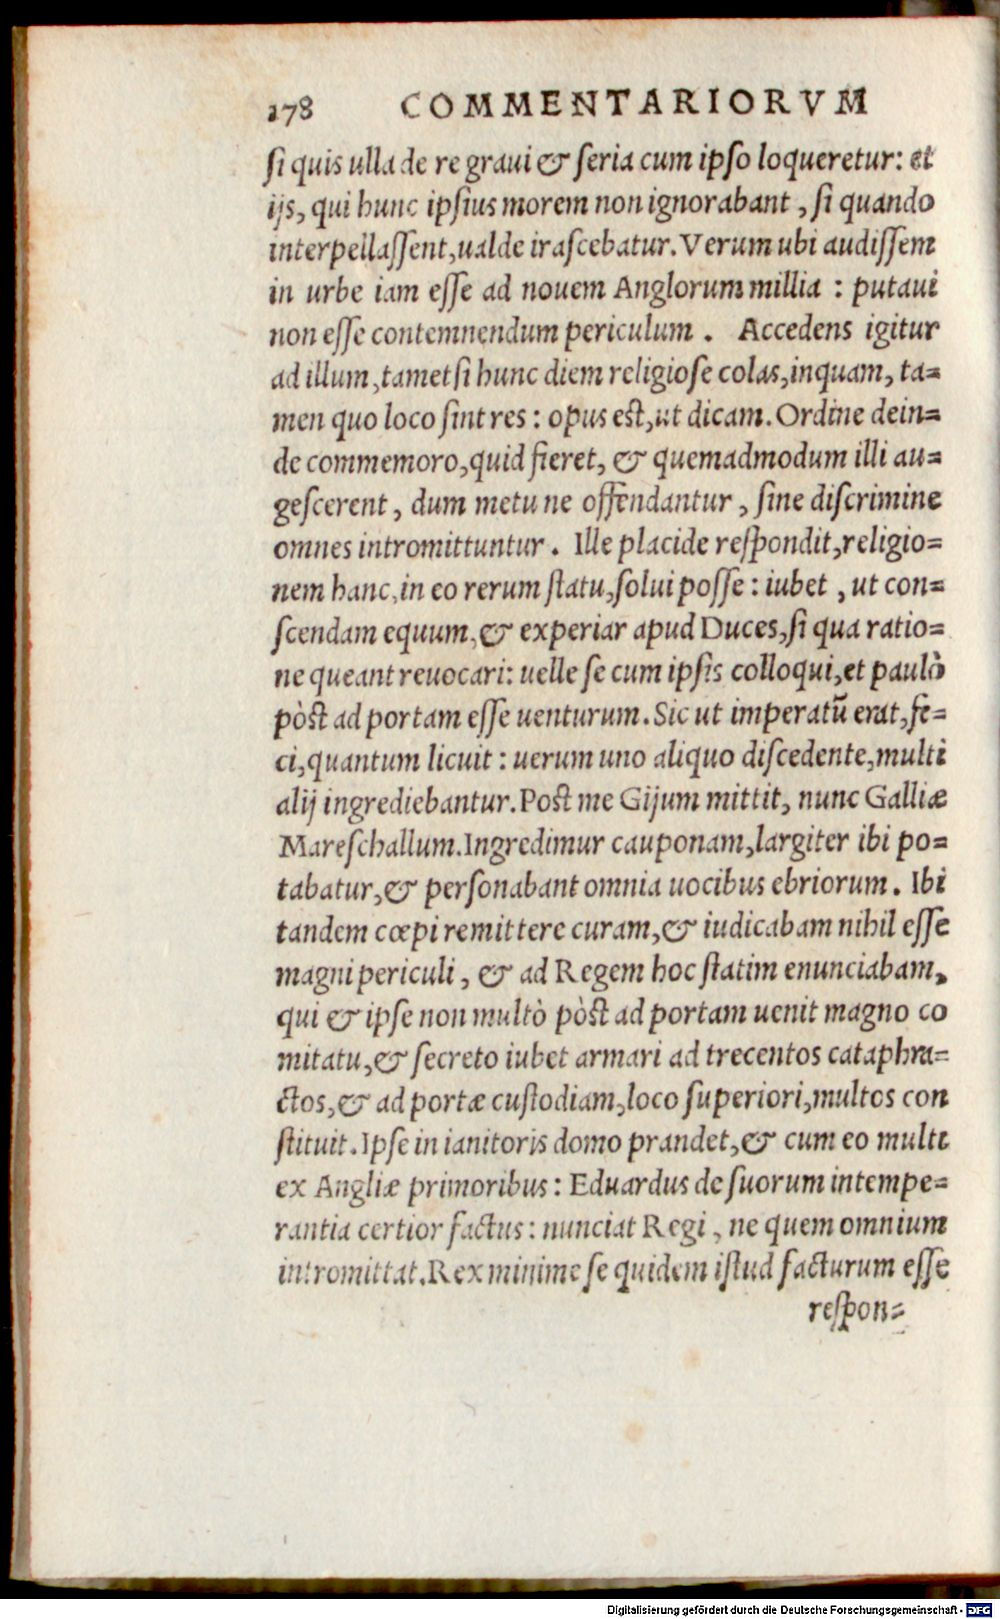 178 COMMENTARIORVM
si quis ulla de re graui & seria cum ipso loqueretur: et
ijs, qui hunc ipsius morem non ignorabant, si quando
interpellassent, ualde irascebatur. Verum ubi audissem
in urbe iam esse ad nouem Anglorum millia : putaui
non esse contemnendum periculum. Accedens igitur
ad illum, tametsi hunc diem religiose colas, inquam, ta=
men quo loco sint res : opus est, ut dicam. Ordine dein=
de commemoro, quid fieret, & quemadmodum illi au=
gescerent, dum metu ne offendantur, sine discrimine
omnes intromittuntur. Ille placide respondit, religio=
nem hanc, in eo rerum statu, solui posse : iubet, ut con=
scendam equum, & experiar apud Duces, si qua ratio=
ne queant reuocari: uelle se cum ipsis colloqui, et paulò
pòst ad portam esse uenturum. Sic ut imperatũ erat, fe=
ci, quantum licuit : uerum uno aliquo discedente, multi
alij ingrediebantur. Post me Gijum mittit, nunc Galliæ
Mareschallum. Ingredimur cauponam, largiter ibi po=
tabatur, & personabant omnia uocibus ebriorum. Ibi
tandem cœpi remittere curam, & iudicabam nihil esse
magni periculi, & ad Regem hoc statim enunciabam,
qui & ipse non multò pòst ad portam uenit magno co
mitatu, & secreto iubet armari ad trecentos cataphra=
ctos, & ad portæ custodiam, loco superiori, multos con
stituit. Ipse in ianitoris domo prandet, & cum eo multi
ex Angliæ primoribus : Eduardus de suorum intempe=
rantia certior factus : nunciat Regi, ne quem omnium
intromittat. Rex minime se quidem istud facturum esse
respon=
Digitalisierung gefördert durch die Deutsche Forschungsgemeinschaft - DFG